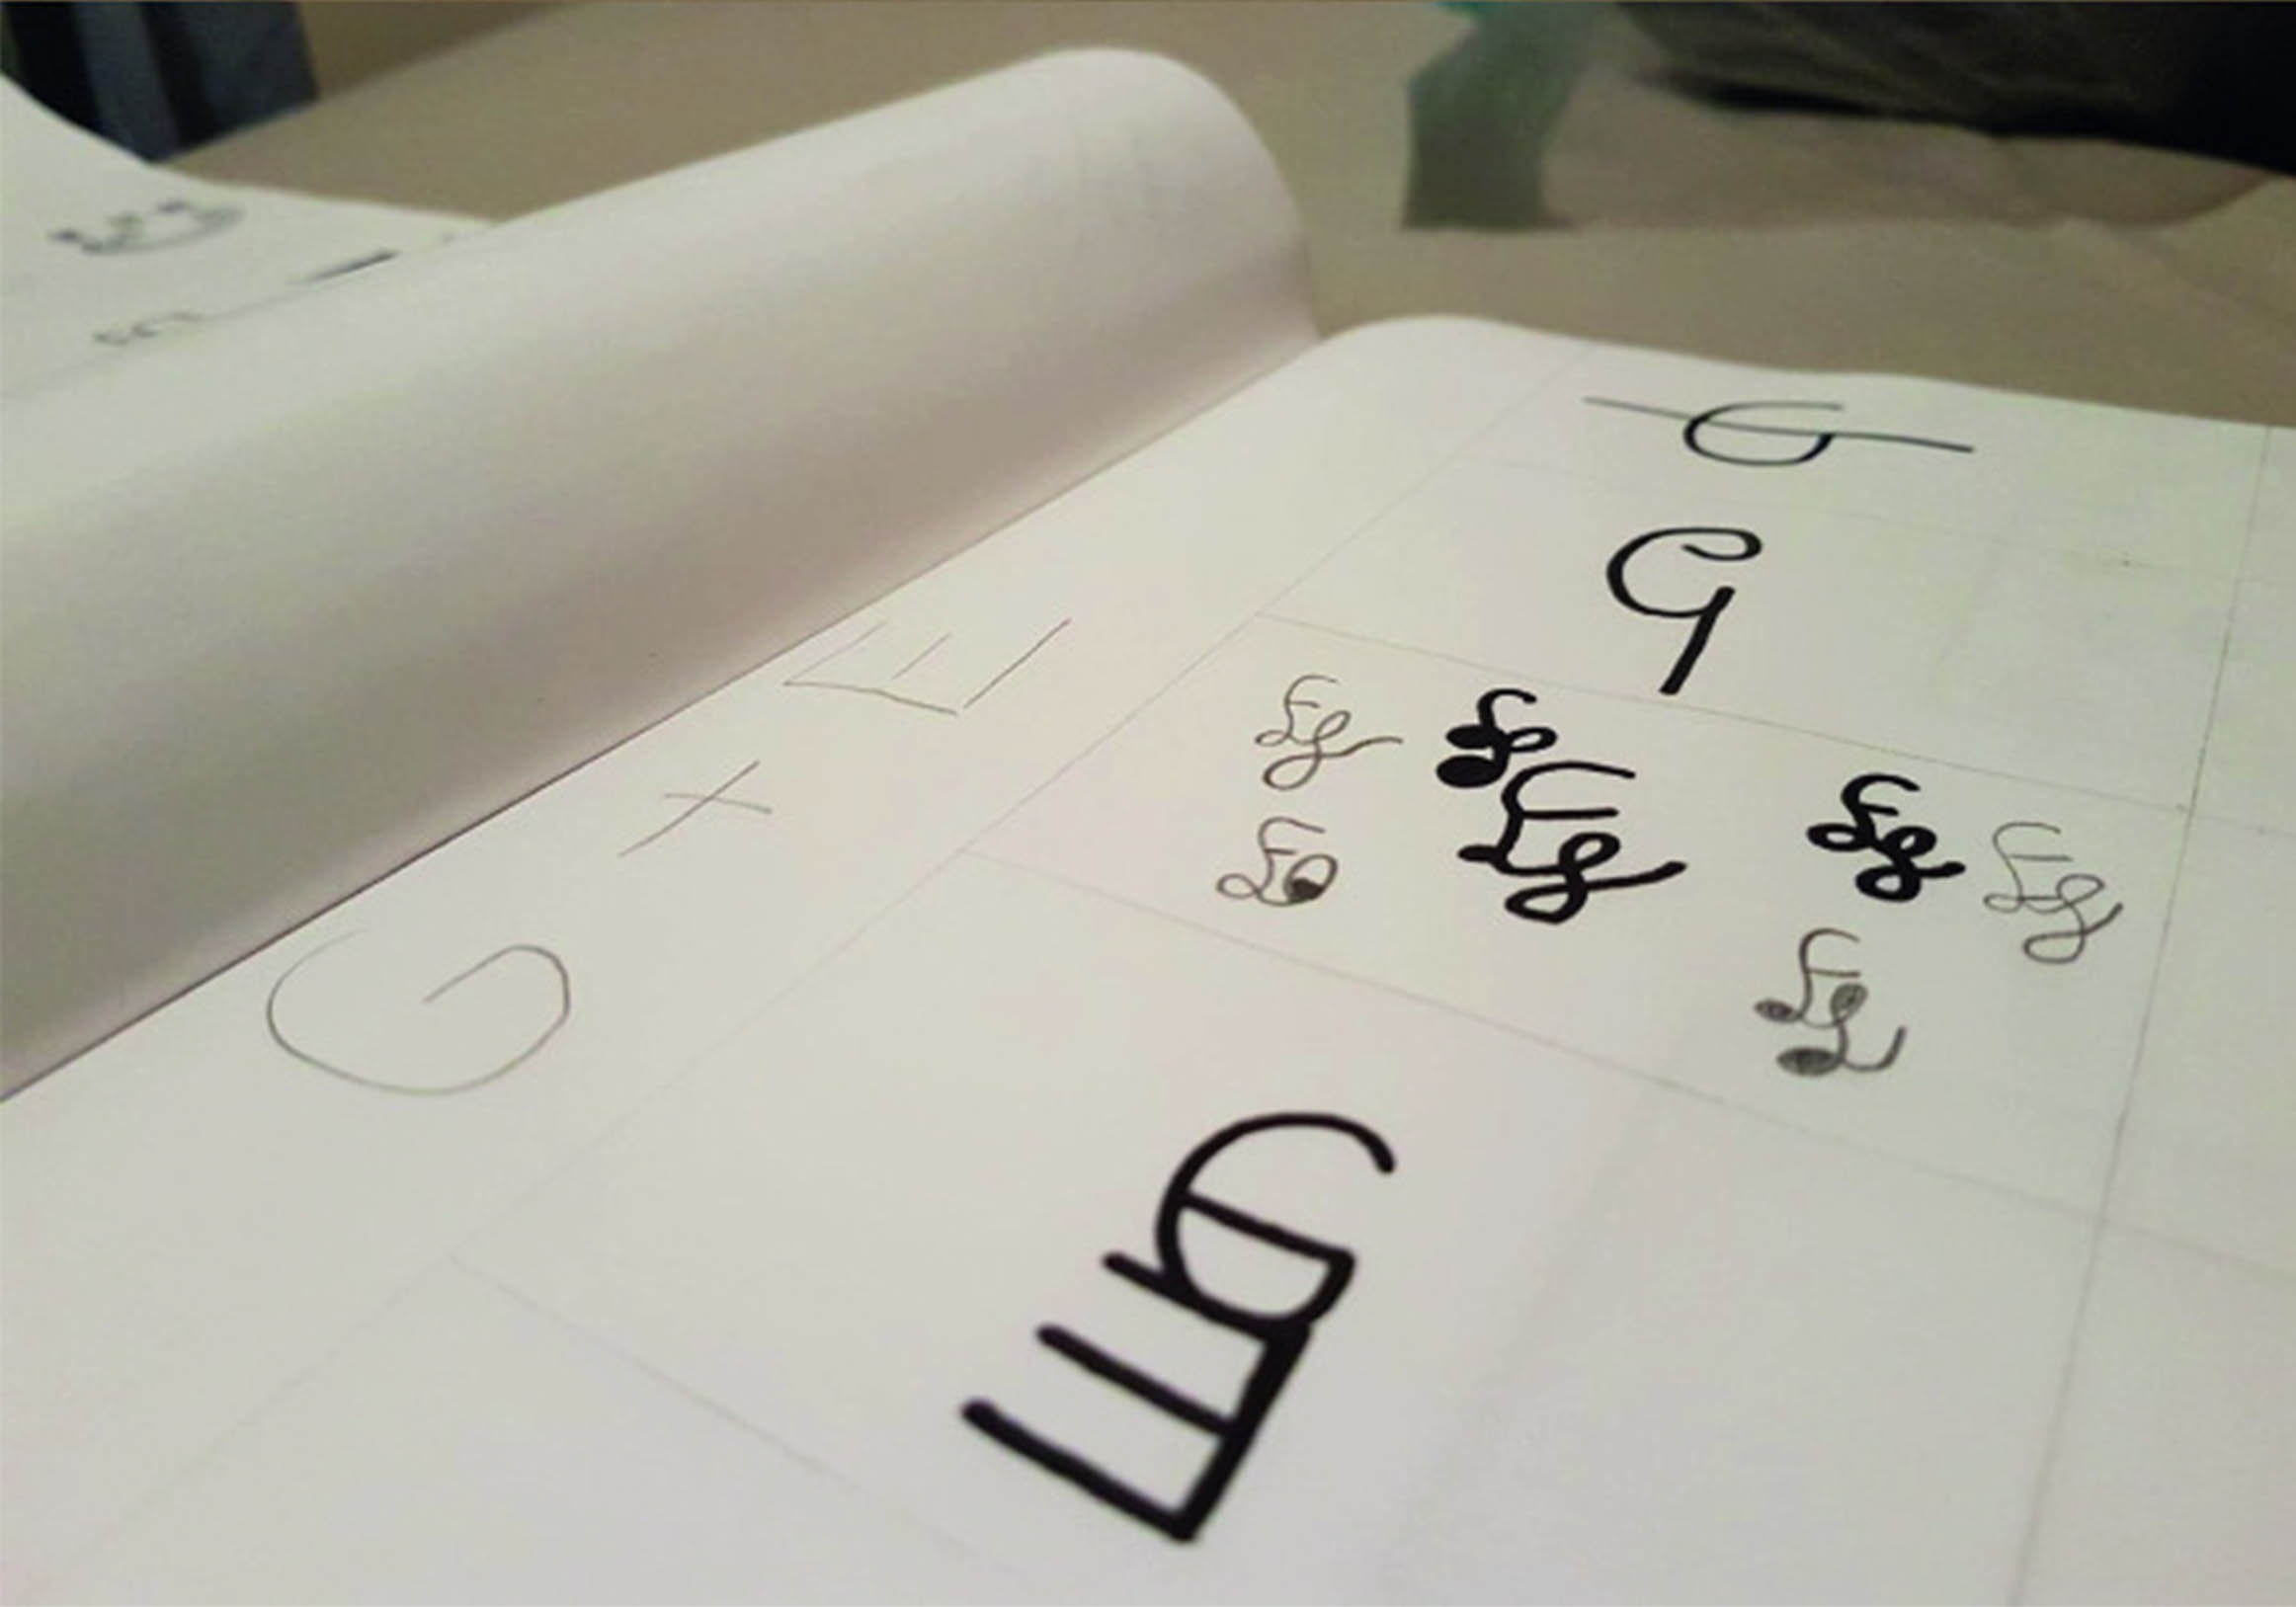 G + E
G
G
Eg Eg
Eg Eg Eg
Eg Eg
GE